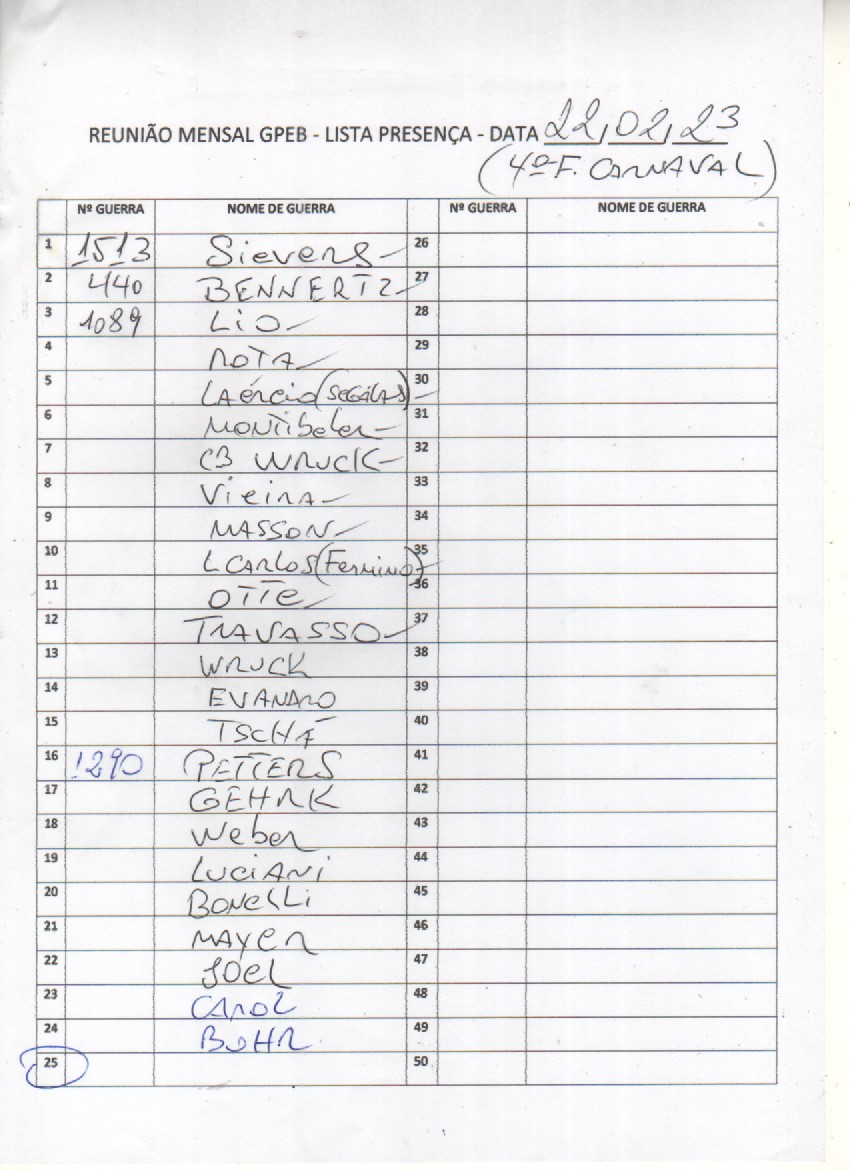 REUNIÃO MENSAL GPEB - LISTA PRESENÇA - DATA 22/02/23
(4ª F. CARNAVAL)
Nº GUERRA NOME DE GUERRA Nº GUERRA NOME DE GUERRA
1 1513 Sievers 26
2 440 BENNERTZ 27
3 1089 LIO 28
4 ROTA 29
5 LAércio (SEGálAS) 30
6 MONTibeler 31
7 CB WRUCK 32
8 VieirA 33
9 MASSON 34
10 L CARLOS (Fermino) 35
11 OTTe 36
12 TRAVASSO 37
13 WRUCK 38
14 EVANDRO 39
15 TSCHÁ 40
16 1290 PETTERS 41
17 GEHRK 42
18 Weber 43
19 LUCIANI 44
20 BONeLLi 45
21 MAYER 46
22 JOEL 47
23 CAROL 48
24 BOHR 49
25 50